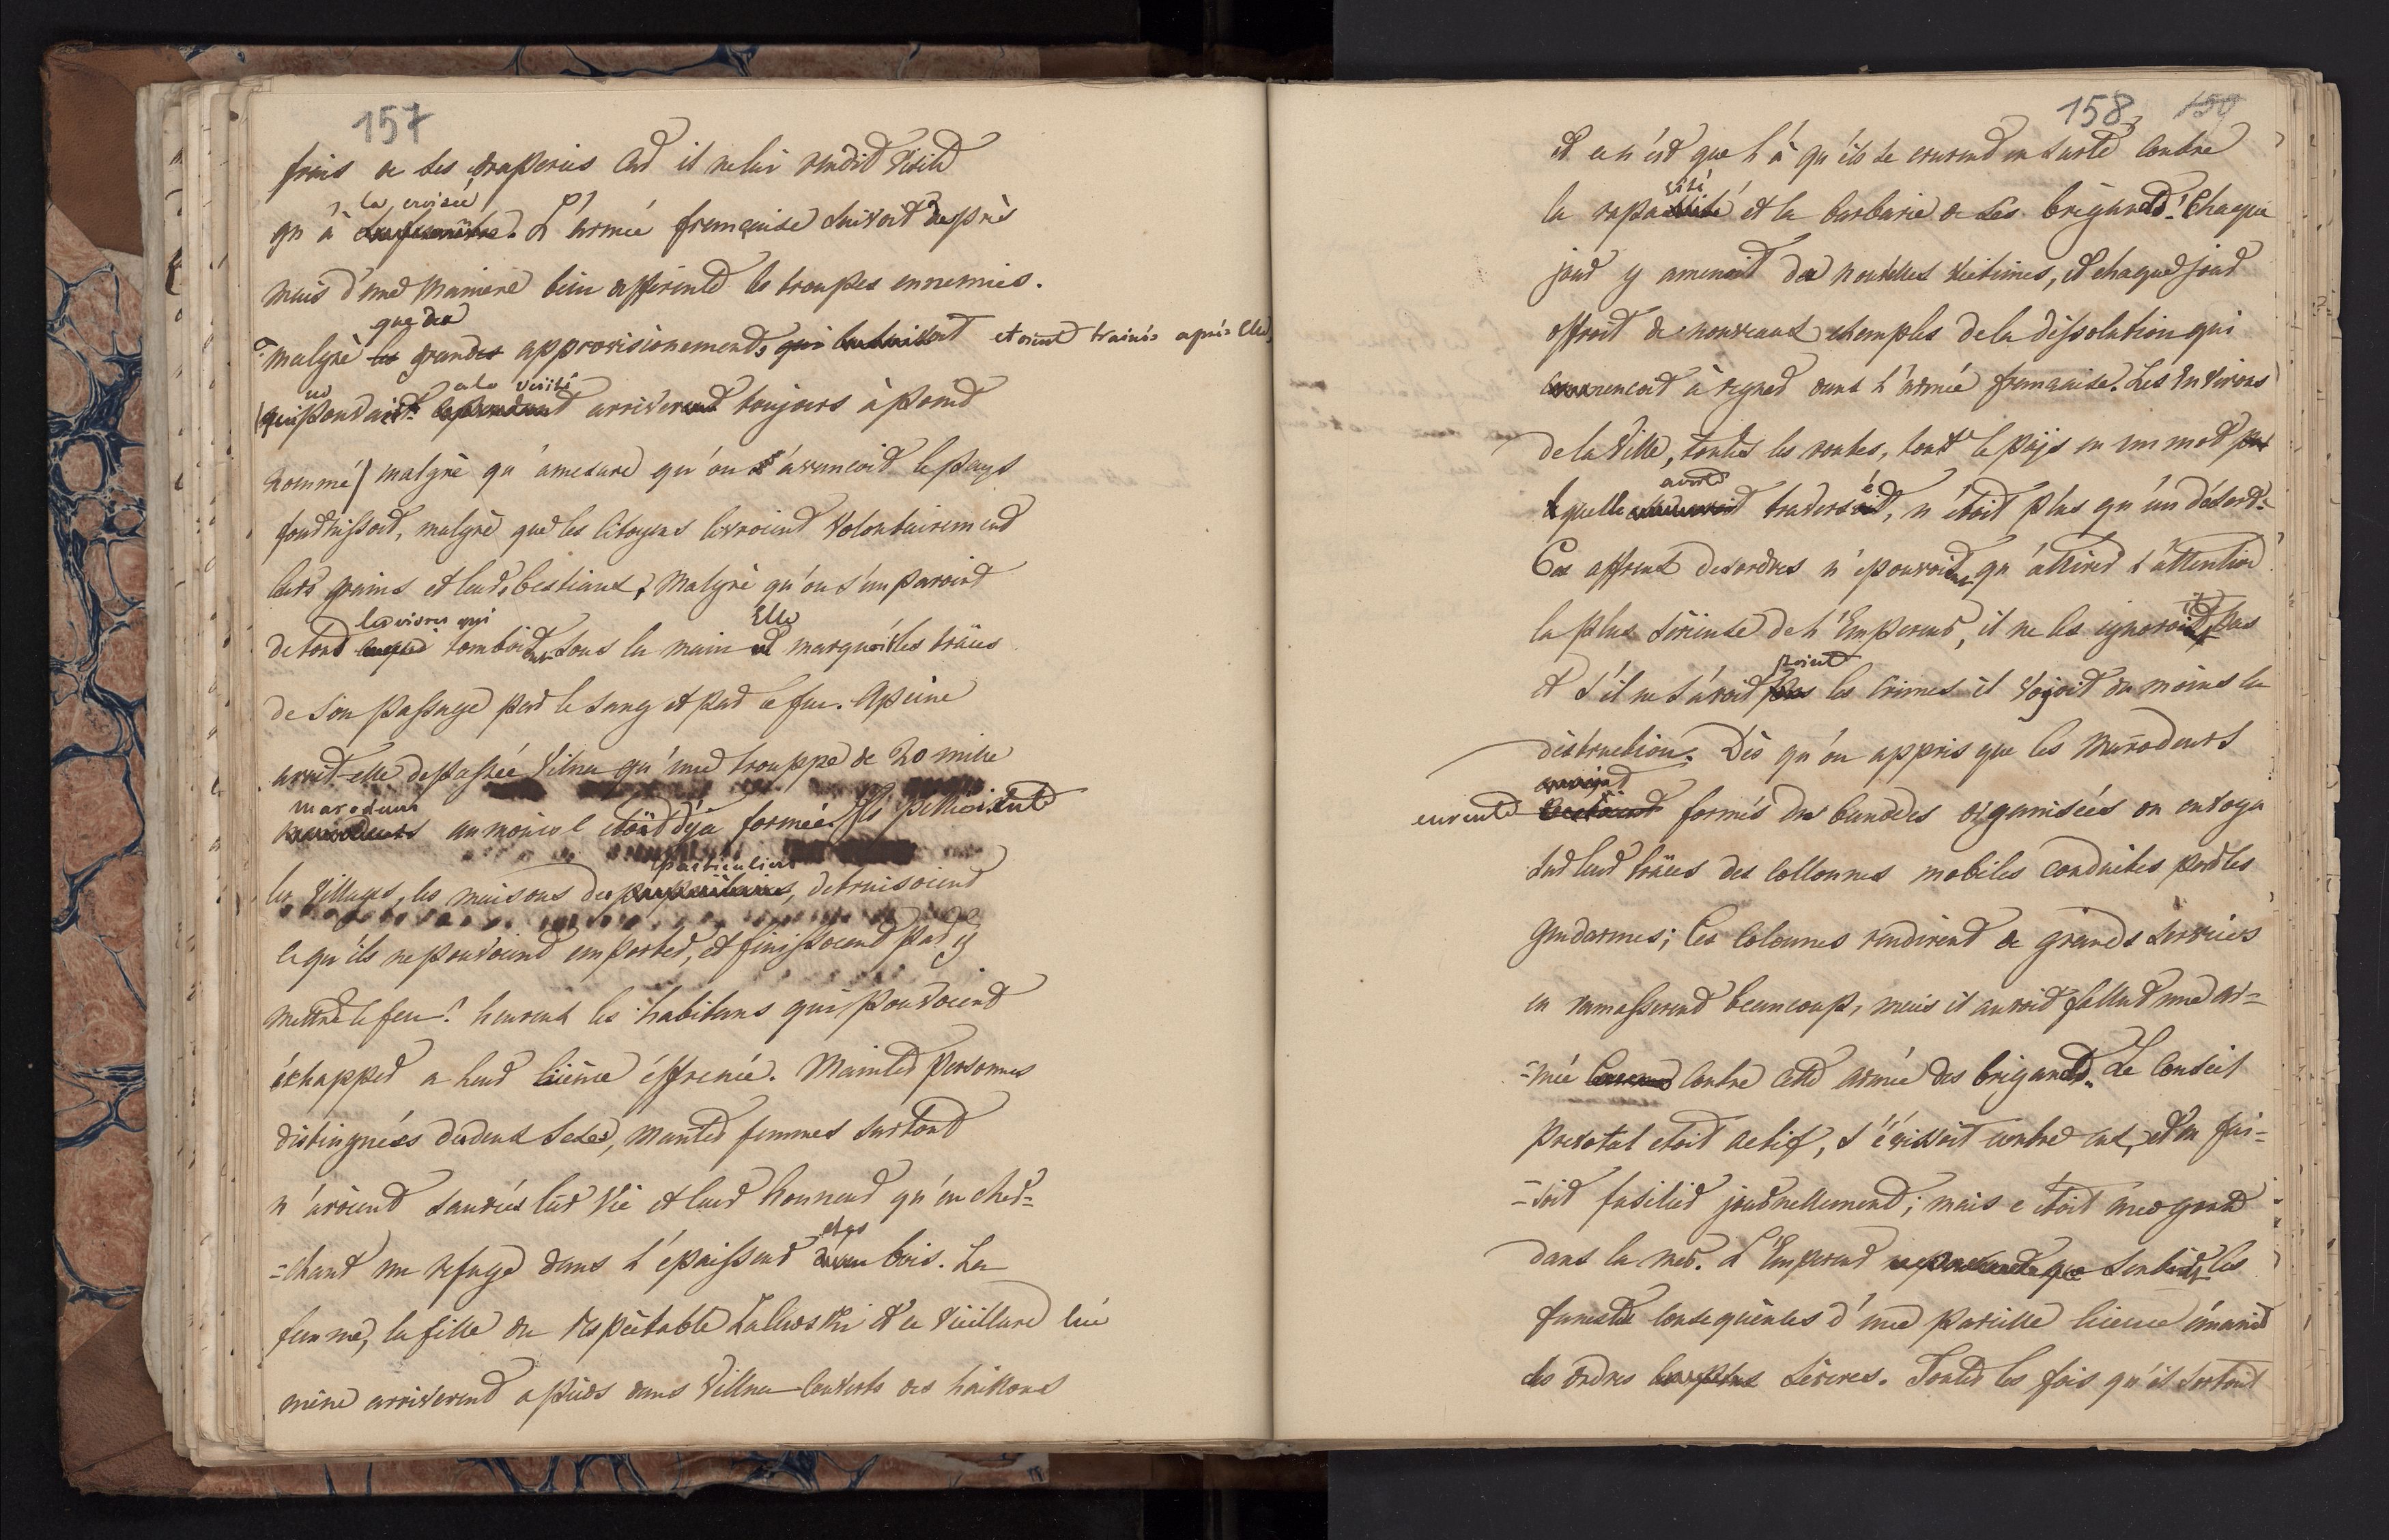 157
frais de ses draperies car il ne lui rendit visite
qu'à la croisée. L'armée française suivoit desprès
mais d'une maniere bien differente les troupes ennemies.
malgré que de grands approvisionements etoient trainés après elle,
(qui ne pouvaient a la vérité arriver toujours à point
nommé) malgré qu'amesure qu'on s'avançoit le pays
fournissoit, malgré que les citoyens livroient volontairement
leurs grains et leurs bestiaux, malgré qu'on s'emparoit
de tous les vivres qui tomboient sous la main Elle marquoit les traces
de son passage par le sang et par le feu. Apeine
avoit-elle depassée Vilna qu'une trouppe de 20 mille
marodeurs au moins l etoit déja formée. Ils pilloient
les villages, les maisons des particuliers, detruisoient
ce qu'ils ne pouvoient emporter, et finissoient par y
mettre le feu! heureux les habitans qui pouvoient
échapper a leur licence éffrenée. Maintes personnes
distinguées des deux sexes, maintes femmes surtout
n'avoient sauvées leur vie et leur honneur qu'en cher=
=chant un refuge dans l'épaisseur des bois. La
femme, la fille du respectable Zalewski et ce vieillard lui
même arriverent a pieds dans Villna couverts des haillons
158 159
et ce n'est que l'à qu'ils se crurent en sureté contre
la rapacité et la barbarie de ces brigands! Chaque
jour y amenoit de nouvelles victimes, et chaque jour
offroit de nouveaux exemples de la dissolution qui
commencoit à regner dans l'armée française. Les Environs
de la Ville, toutes les routes, tout le pays en un mot
quelle avoit traversé, n'étoit plus qu'un désert.
Ces affreux desordres n'e pouvoient qu'attirer l'attention
la plus sérieuse de l'Empereur, il ne les ignoroit pas
et s'il ne savoit point les crimes il voyoit du moins la
distruction. Dès qu'on appris que les marodeurs
eurent formés des bandes organisées on envoya
sur leur traces des collonnes mobiles conduites par les
gendarmes; Ces colonnes rendirent de grands services
en ramasserent beaucoup, mais il auroit fallut une ar=
=mée contre cette armée des brigands. Le Conseil
prevotal etoit actif, s'évissoit contre eux, et en fai=
=soit fusilier journellement; mais c'étoit une goute
dans la mer. L'Empereur sentit les
funestes consequences d'une pareille licence émanit
des ordres séveres. Toutes les fois qu'il sortoit